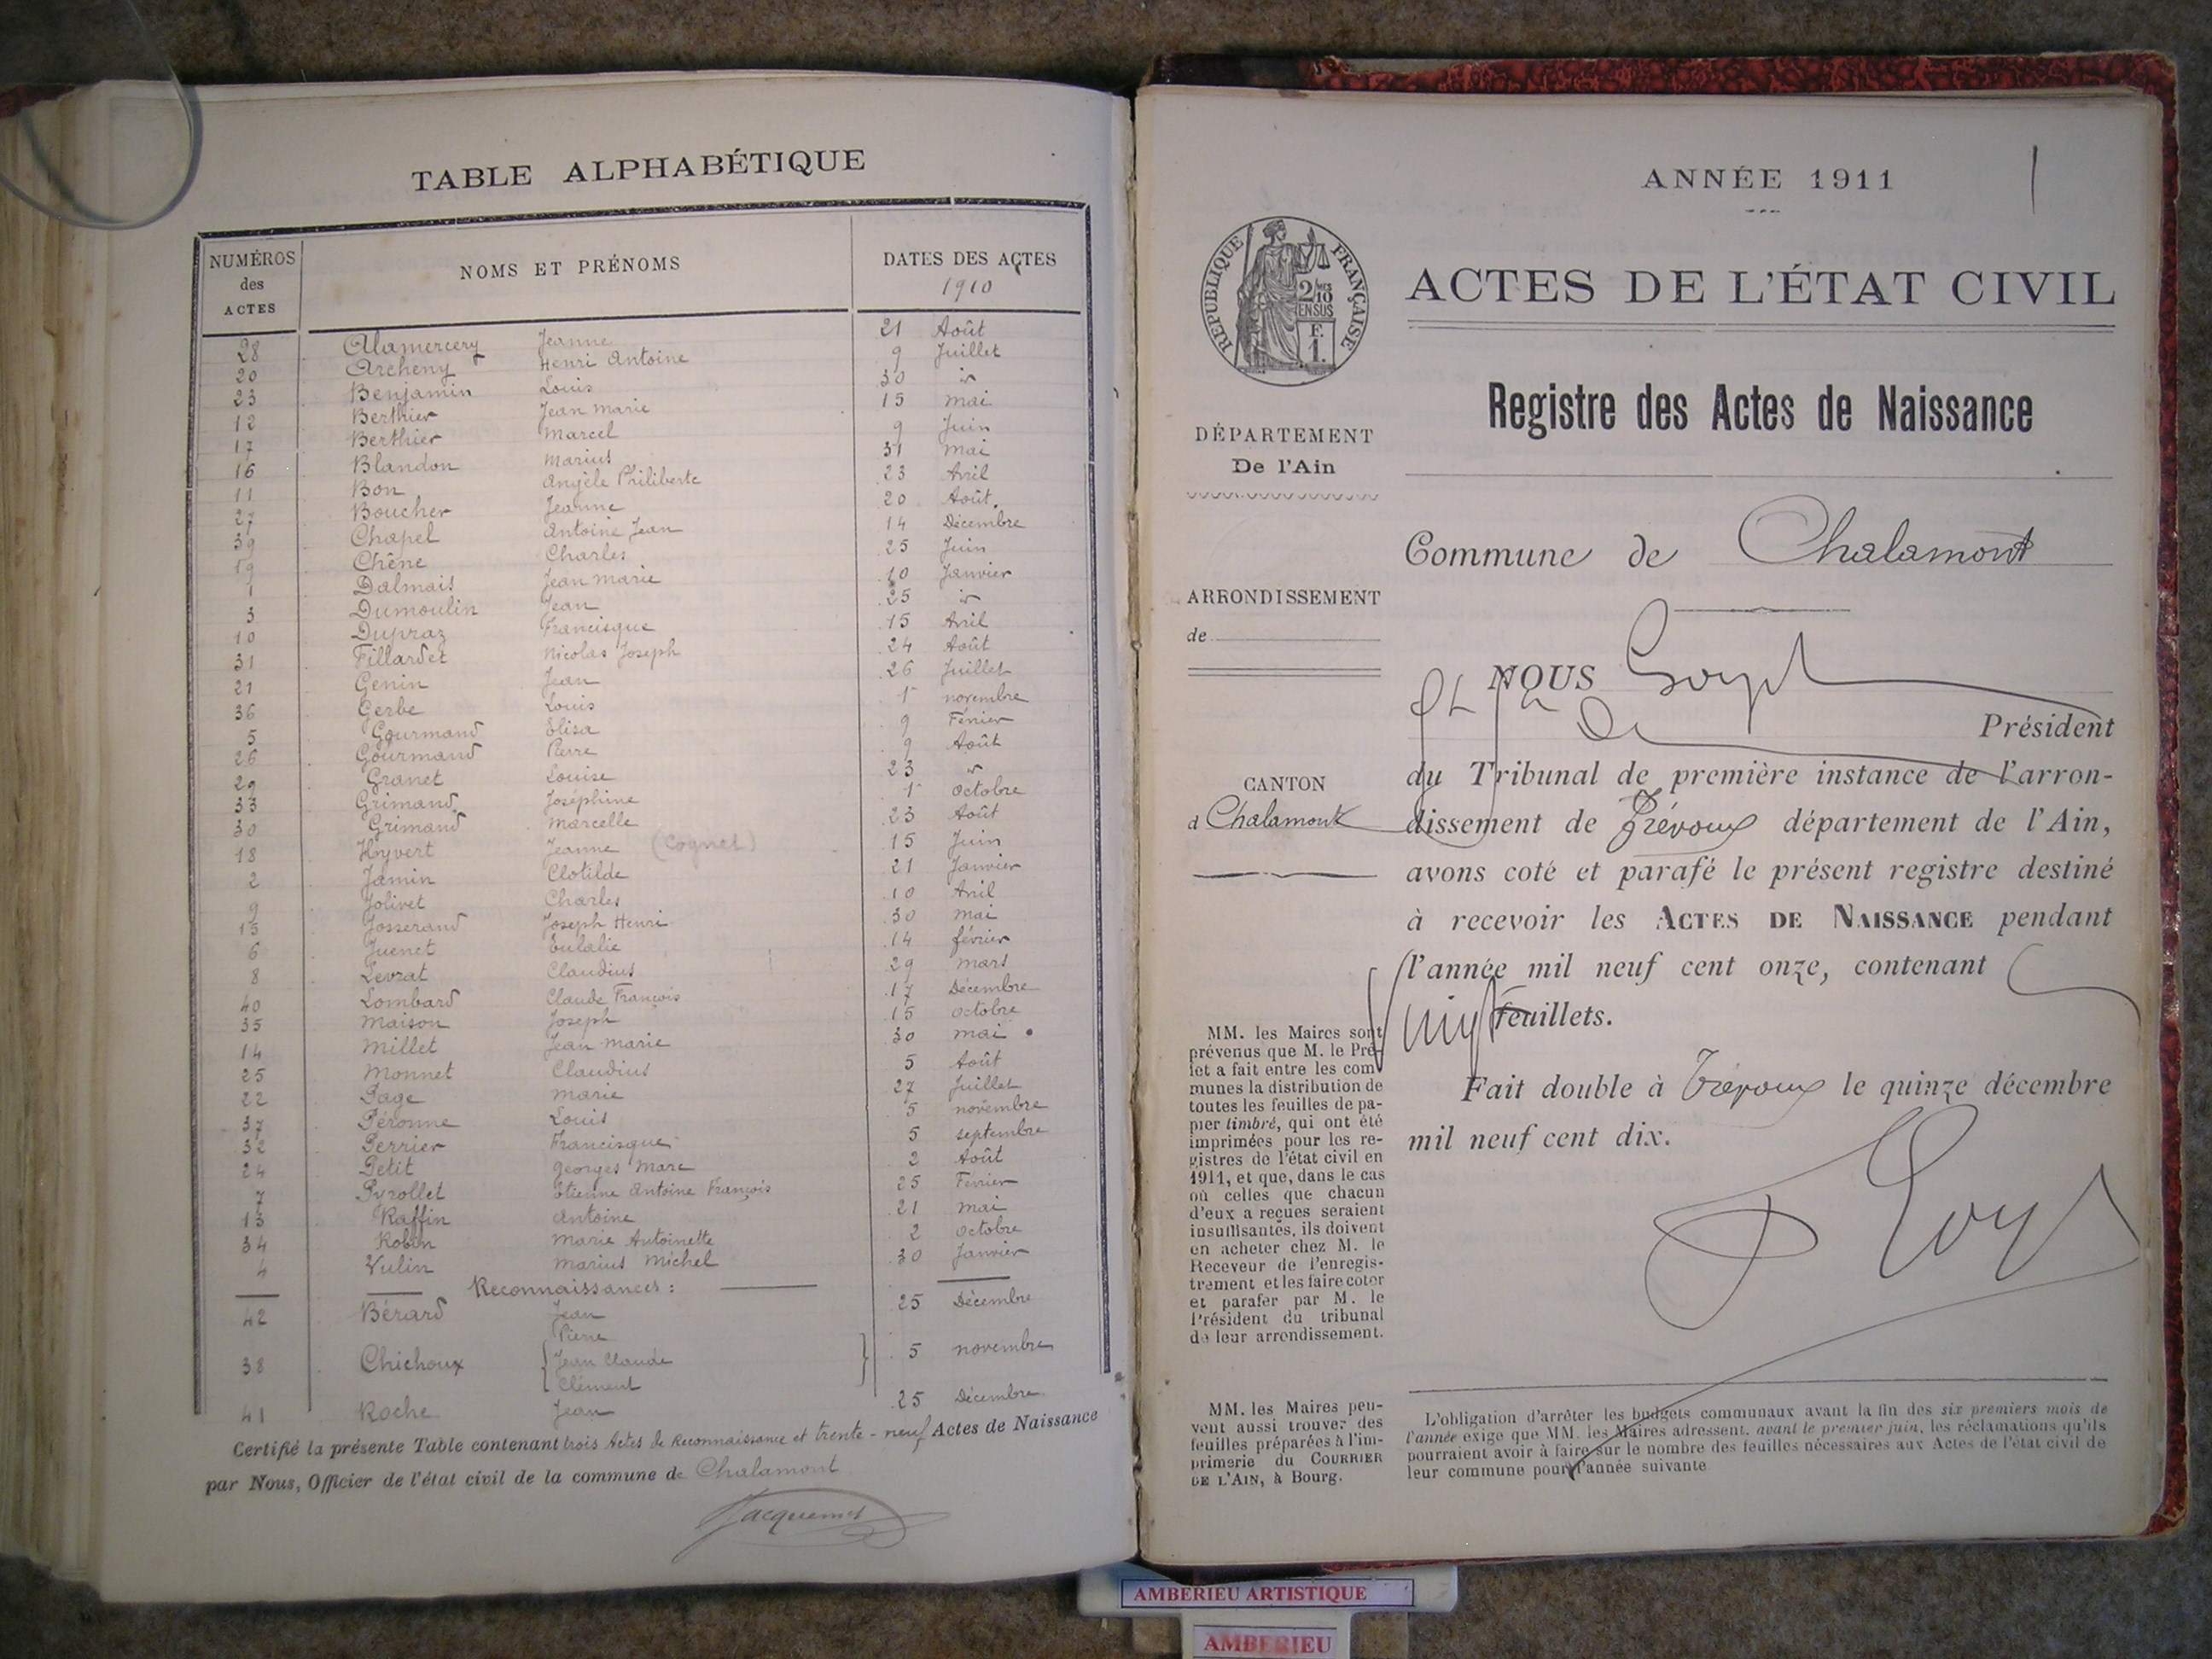 TABLE ALPHABÉTIQUE
NUMÉROS des ACTES
NOMS ET PRÉNOMS
DATES DES ACTES
1910
28 Alamercery Jeanne 21 Août
20 Archeny Henri Antoine 9 Juillet
23 Benjamin Louis 30 id
12 Berthier Jean Marie 15 Mai
17 Berthier Marcel 9 Juin
16 Blandon Marius 31 Mai
11 Bon Angèle Philiberte 23 Avril
27 Boucher Jeanne 20 Août
39 Chapel Antoine Jean 14 Décembre
19 Chêne Charles 25 Juin
1 Dalmais Jean Marie 10 Janvier
3 Dumoulin Jean 25 id
10 Dupraz Francisque 15 Avril
31 Fillardet Nicolas Joseph 24 Août
21 Genin Jean 26 Juillet
36 Gerbe Louis 1er novembre
5 Gourmand Elisa 9 Février
26 Gourmand Pierre 9 Août
29 Granet Louise 23 id
33 Grimand Joséphine 1er Octobre
30 Grimand Marcelle 23 Août
18 Hyvert Jeanne (Cognet) 15 Juin
2 Jamin Clotilde 21 Janvier
9 Jolivet Charles 10 Avril
15 Josserand Joseph Henri 30 Mai
6 Juenet Eulalie 14 février
8 Levrat Claudius 29 Mars
40 Lombard Claude François 17 Décembre
35 Maison Joseph 15 Octobre
14 Millet Jean Marie 30 Mai
25 Monnet Claudius 5 Août
22 Page Marie 27 Juillet
37 Péronne Louis 5 novembre
32 Perrier Francisque 5 septembre
24 Petit Georges Marc 2 Août
7 Pyrollet Etienne Antoine François 25 Février
13 Raffin Antoine 21 Mai
34 Robin Marie Antoinette 2 Octobre
4 Vulin Marius Michel 30 Janvier
Reconnaissances :
42 Bérard Jean 25 Décembre
Pierre
38 Chichoux Jean Claude 5 novembre
Clément
41 Roche Jean 25 Décembre
Certifié la présente Table contenant trois Actes de Reconnaissance et trente-neuf Actes de Naissance
par Nous, Officier de l'état civil de la commune de Chalamont
Jacquemet
ANNÉE 1911
RÉPUBLIQUE FRANÇAISE
2/10 EN SUS
F. 1.
ACTES DE L'ÉTAT CIVIL
Registre des Actes de Naissance
DÉPARTEMENT
De l'Ain
Commune de Chalamont
ARRONDISSEMENT
de
NOUS
Président
CANTON
d Chalamont
du Tribunal de première instance de l'arron-
dissement de Trévoux département de l'Ain,
avons coté et parafé le présent registre destiné
à recevoir les ACTES DE NAISSANCE pendant
l'année mil neuf cent onze, contenant
vingt feuillets.
Fait double à Trévoux le quinze décembre
mil neuf cent dix.
MM. les Maires sont
prévenus que M. le Pré-
fet a fait entre les com-
munes la distribution de
toutes les feuilles de pa-
pier timbré, qui ont été
imprimées pour les re-
gistres de l'état civil en
1911, et que, dans le cas
où celles que chacun
d'eux a reçues seraient
insuffisantes, ils doivent
en acheter chez M. le
Receveur de l'enregis-
trement et les faire coter
et parafer par M. le
Président du tribunal
de leur arrondissement.
MM. les Maires peu-
vent aussi trouver des
feuilles préparées à l'im-
primerie du COURRIER
DE L'AIN, à Bourg.
L'obligation d'arrêter les budgets communaux avant la fin des six premiers mois de
l'année exige que MM. les Maires adressent, avant le premier juin, les réclamations qu'ils
pourraient avoir à faire sur le nombre des feuilles nécessaires aux Actes de l'état civil de
leur commune pour l'année suivante
AMBERIEU ARTISTIQUE
AMBERIEU